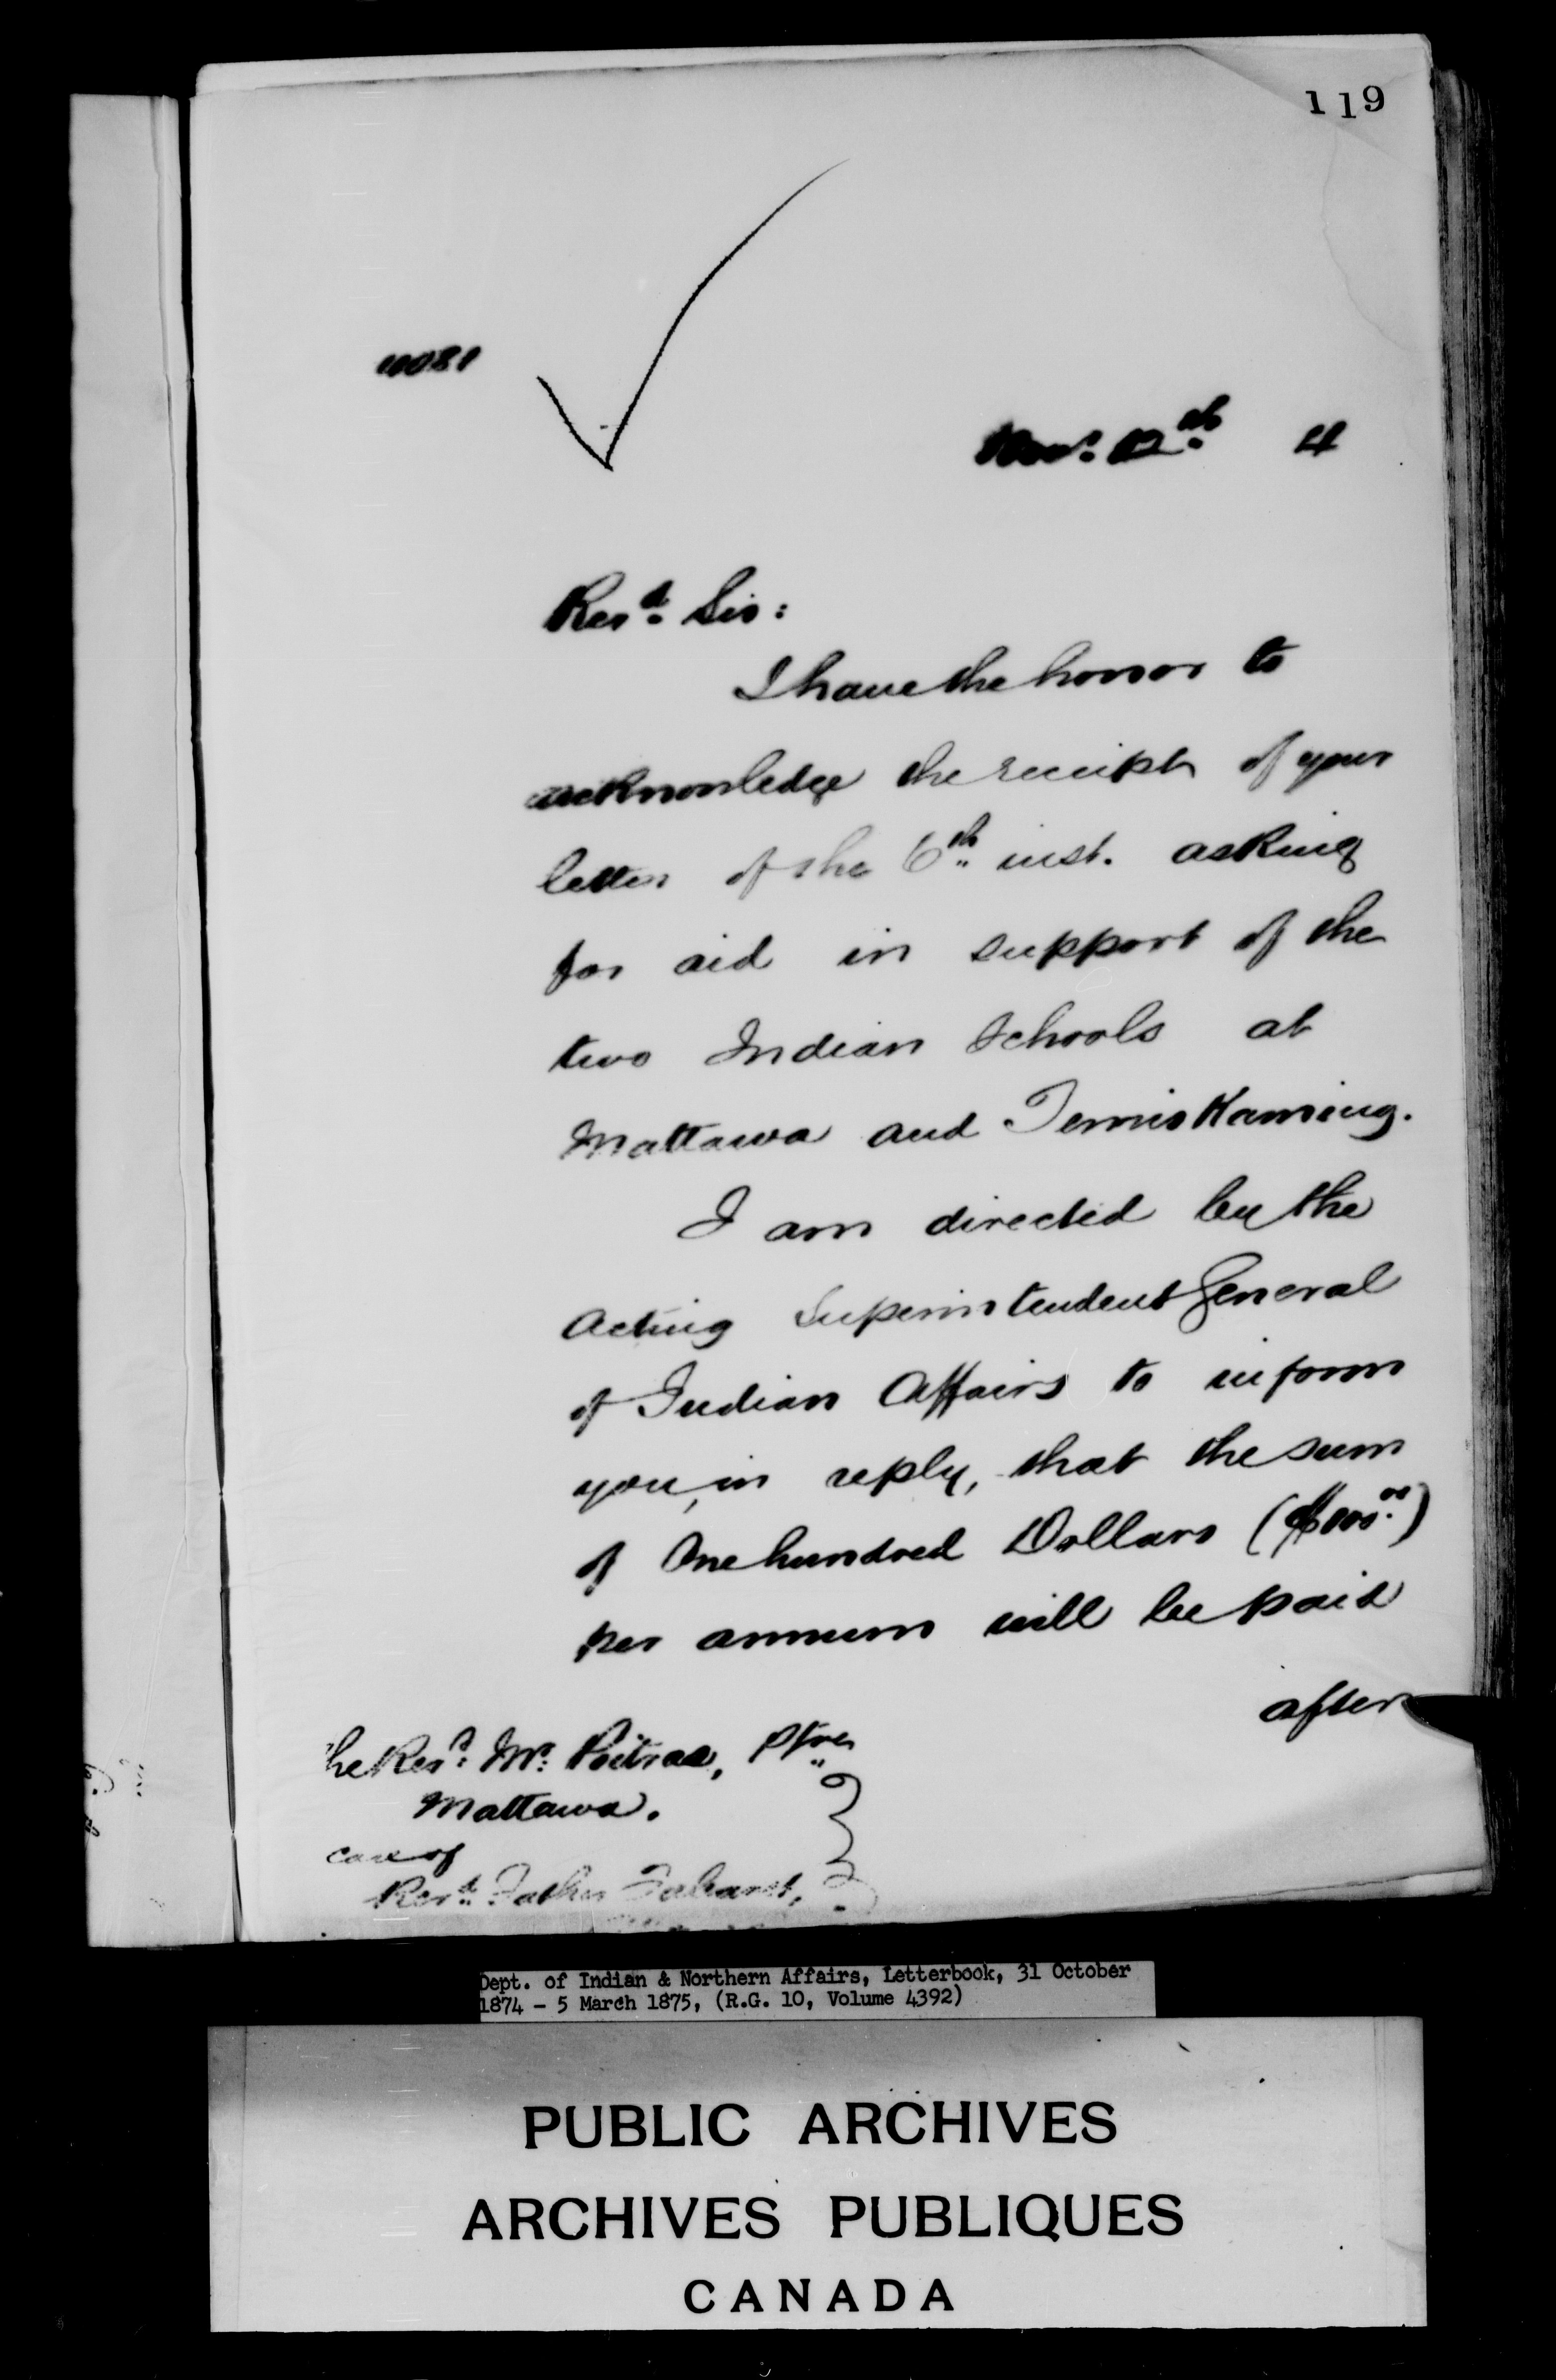 119
Nov. 12th 4
Revd. Sir:
I have the honor to
acknowledge the receipt of your
letter of the 6th inst. asking
for aid in support of the
two Indian Schools at
Mattawa and Temiskaming.
I am directed by the
Acting Superintendent General
of Indian Affairs to inform
you, in reply, that the sum
of One hundred Dollars ($100.00)
per annum will be paid
after
he Revd. Mr. Poitras, Ptre
Mattawa.
care of
Revd. Father
Dept. of Indian & Northern Affairs, Letterbook, 31 October
1874 - 5 March 1875, (R.G. 10, Volume 4392)
PUBLIC ARCHIVES
ARCHIVES PUBLIQUES
CANADA